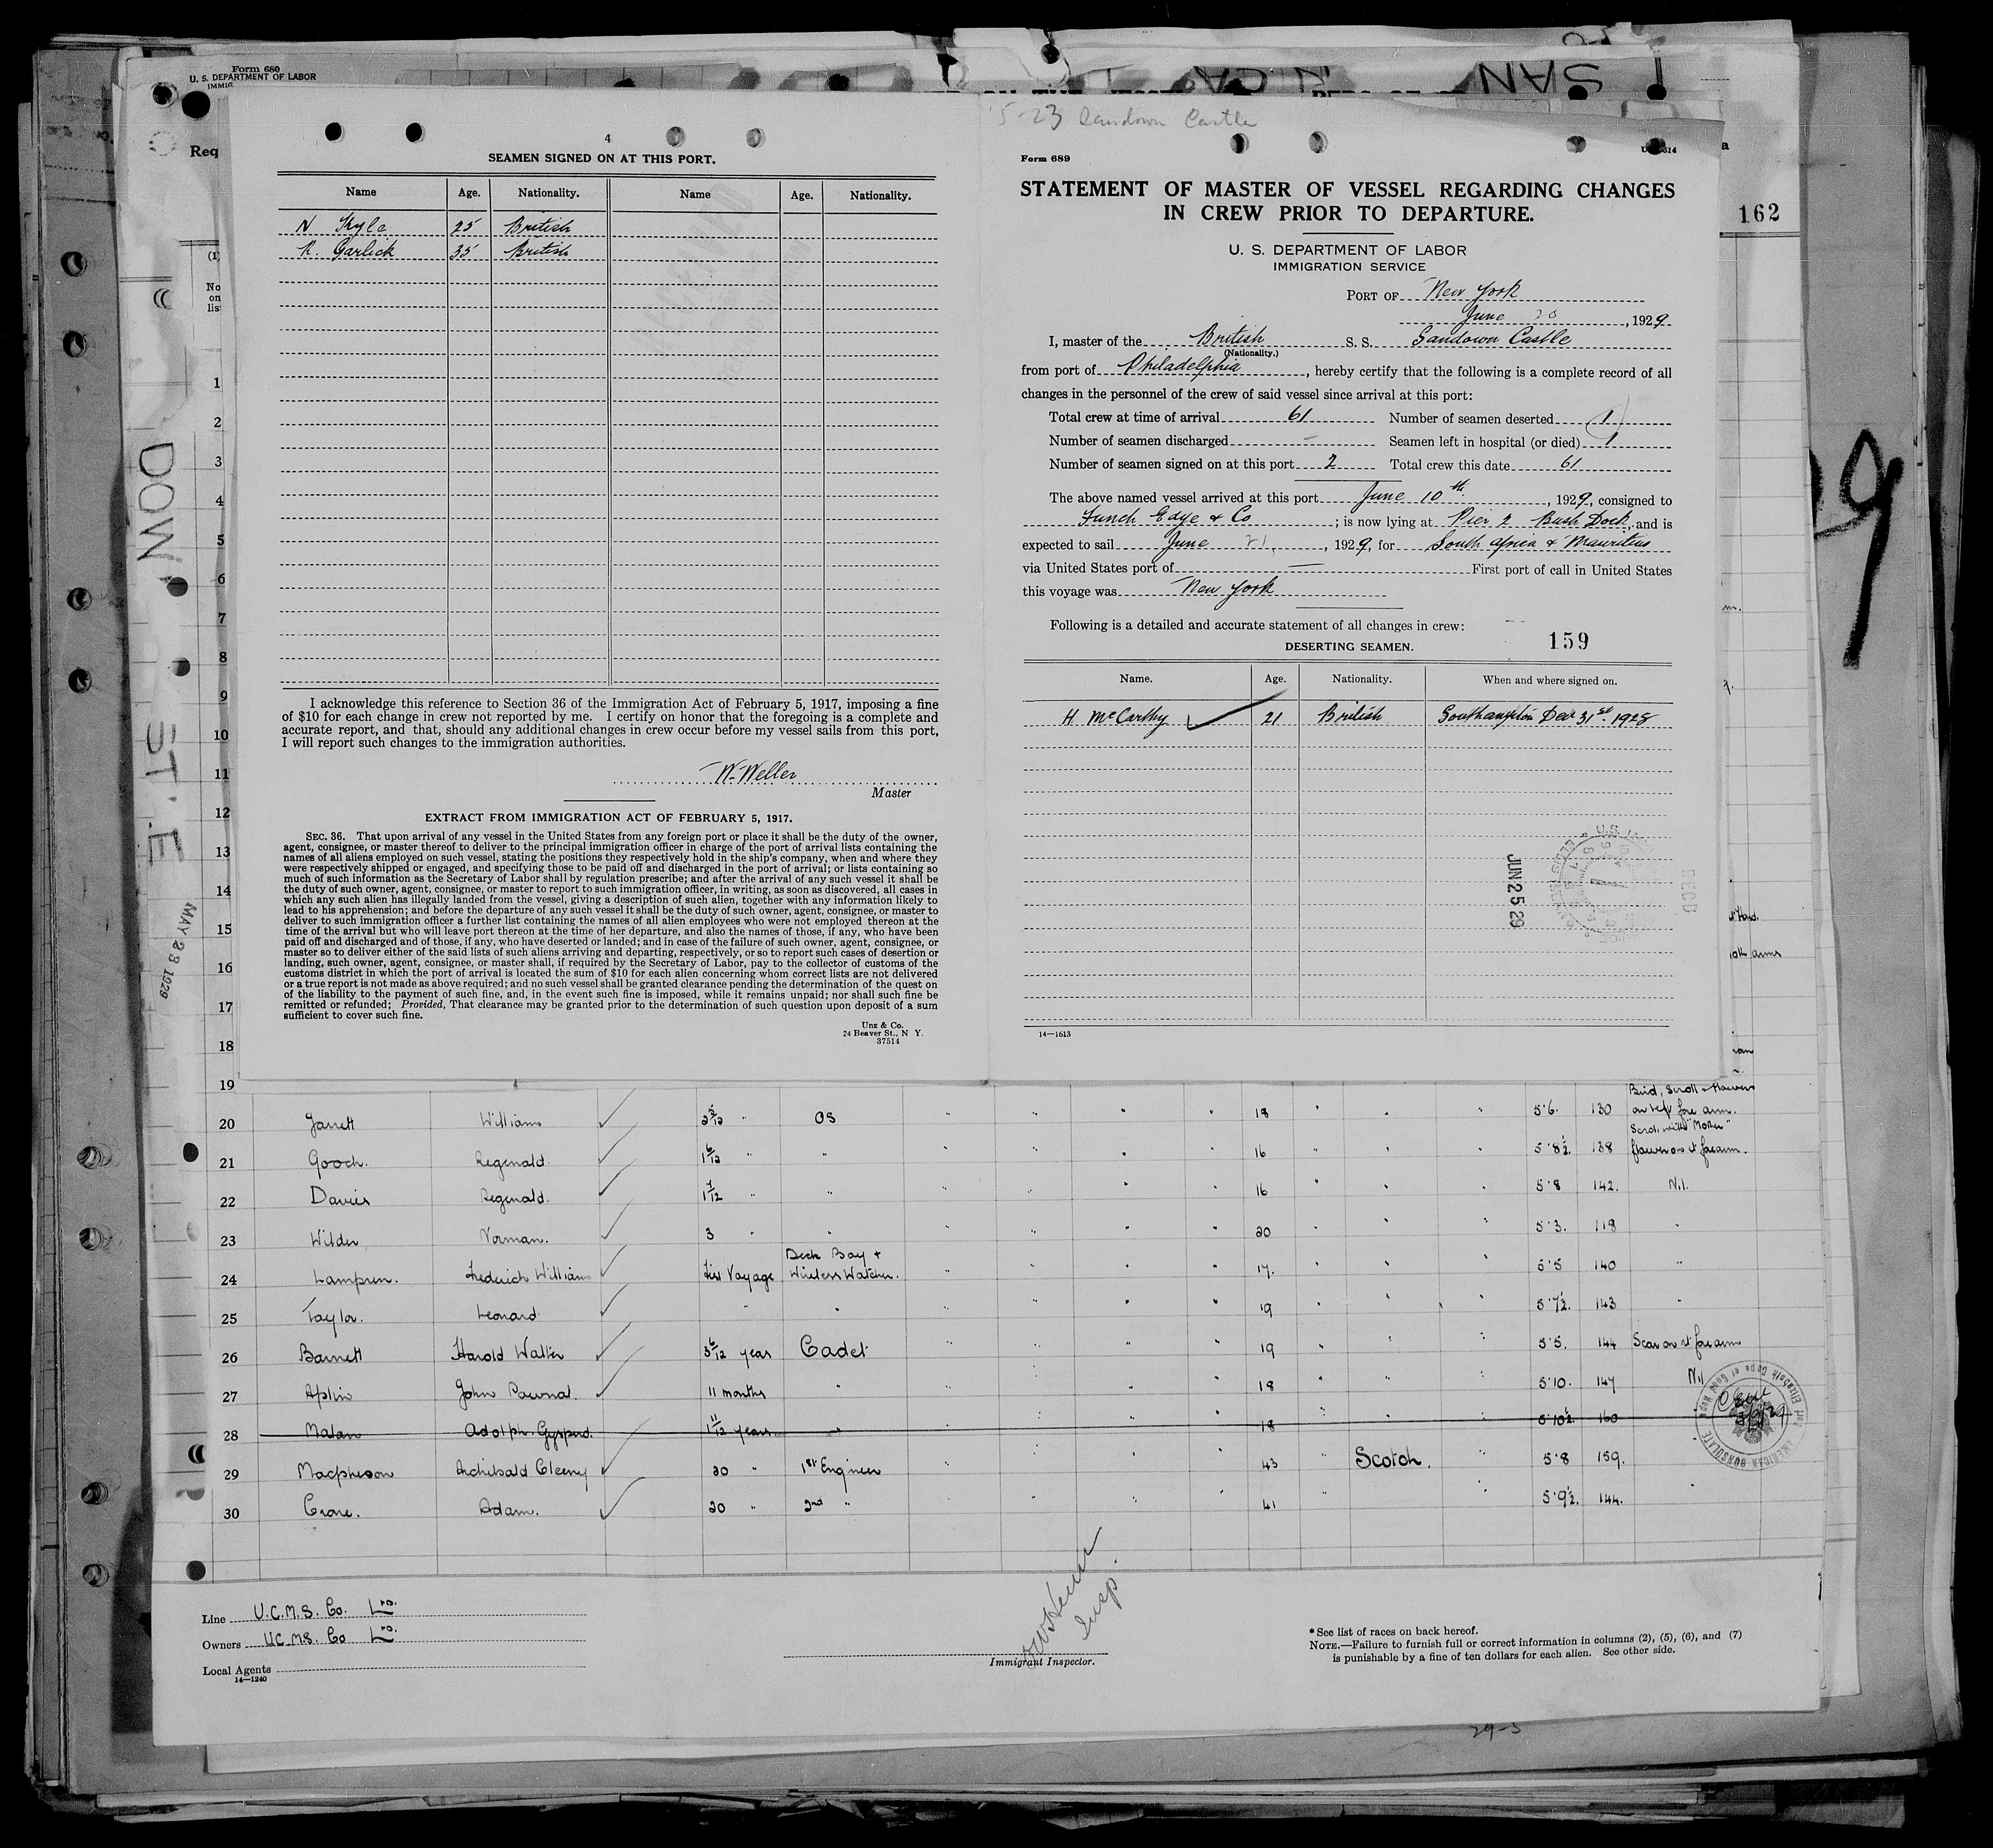 Form 680
U. S. DEPARTMENT OF LABOR
Req
162
DOW
ST E
MAY 23 1929
4
SEAMEN SIGNED ON AT THIS PORT.
Name Age. Nationality. Name Age. Nationality.
N Kyle 25 British
R. Garlick 35 British
I acknowledge this reference to Section 36 of the Immigration Act of February 5, 1917, imposing a fine
of $10 for each change in crew not reported by me. I certify on honor that the foregoing is a complete and
accurate report, and that, should any additional changes in crew occur before my vessel sails from this port,
I will report such changes to the immigration authorities.
W. Weller
Master
EXTRACT FROM IMMIGRATION ACT OF FEBRUARY 5, 1917.
SEC. 36. That upon arrival of any vessel in the United States from any foreign port or place it shall be the duty of the owner,
agent, consignee, or master thereof to deliver to the principal immigration officer in charge of the port of arrival lists containing the
names of all aliens employed on such vessel, stating the positions they respectively hold in the ship's company, when and where they
were respectively shipped or engaged, and specifying those to be paid off and discharged in the port of arrival; or lists containing so
much of such information as the Secretary of Labor shall by regulation prescribe; and after the arrival of any such vessel it shall be
the duty of such owner, agent, consignee, or master to report to such immigration officer, in writing, as soon as discovered, all cases in
which any such alien has illegally landed from the vessel, giving a description of such alien, together with any information likely to
lead to his apprehension; and before the departure of any such vessel it shall be the duty of such owner, agent, consignee, or master to
deliver to such immigration officer a further list containing the names of all alien employees who were not employed thereon at the
time of the arrival but who will leave port thereon at the time of her departure, and also the names of those, if any, who have been
paid off and discharged and of those, if any, who have deserted or landed; and in case of the failure of such owner, agent, consignee, or
master so to deliver either of the said lists of such aliens arriving and departing, respectively, or so to report such cases of desertion or
landing, such owner, agent, consignee, or master shall, if required by the Secretary of Labor, pay to the collector of customs of the
customs district in which the port of arrival is located the sum of $10 for each alien concerning whom correct lists are not delivered
or a true report is not made as above required; and no such vessel shall be granted clearance pending the determination of the quest on
of the liability to the payment of such fine, and, in the event such fine is imposed, while it remains unpaid; nor shall such fine be
remitted or refunded; Provided, That clearance may be granted prior to the determination of such question upon deposit of a sum
sufficient to cover such fine.
Unz & Co.
24 Beaver St., N Y.
37514
5-23 Sandown Castle
Form 689
STATEMENT OF MASTER OF VESSEL REGARDING CHANGES
IN CREW PRIOR TO DEPARTURE.
U. S. DEPARTMENT OF LABOR
IMMIGRATION SERVICE
PORT OF New York
June 20, 1929
I, master of the British S. S. Sandown Castle
(Nationality.)
from port of Philadelphia, hereby certify that the following is a complete record of all
changes in the personnel of the crew of said vessel since arrival at this port:
Total crew at time of arrival 61 Number of seamen deserted 1
Number of seamen discharged — Seamen left in hospital (or died) 1
Number of seamen signed on at this port 2 Total crew this date 61
The above named vessel arrived at this port June 10th, 1929, consigned to
Funch Edye & Co; is now lying at Pier 2 Bush Dock, and is
expected to sail June 21, 1929, for South Africa & Mauritius
via United States port of — First port of call in United States
this voyage was New York
Following is a detailed and accurate statement of all changes in crew:
159
DESERTING SEAMEN.
Name. Age. Nationality. When and where signed on.
H. McCarthy 21 British Southampton Decr 31st 1928
JUN 25 29
REC'D
14—1613
1
2
3
4
5
6
7
8
9
10
11
12
13
14
15
16
17
18
19
Bird, Scroll & Flowers
20 Jarrett William 2 5/12 " OS " " " " 18 " " " 5'6. 130 on left fore arm.
Scroll with "Mother"
21 Gooch. Reginald. 1 6/12 " " " 16 " " " 5'8½. 138
22 Davies Reginald. " " 16 " " " 5'8 142. Nil.
23 Wilder Norman. 3 " " 20 " " " 5'3. 118 "
Deck Boy &
24 Frederick William First Voyage Wireless Watcher. " " " 17. " " " 5'5 140 "
25 Taylor. Leonard " " 19 " " " 5'7½. 143 "
26 Barnett Harold Walter 3 6/12 year Cadet " " " 19 " " " 5'5. 144 Scar on rt forearm
27 Aplin John Pownal. 11 months " 18 " " " 5'10. 147 Nil
28 Malan Adolph. 1 11/12 years " 18 " " " 5'10½. 160
29 Macpherson Archibald 20 " 1st Engineer " " " 43 " Scotch. " 5'8 159.
30 Crone. Adam. 20 " 2nd " " " 41 " " 5'9½. 144. "
AMERICAN CONSULATE
Line U.C.M.S. Co. Ltd.
Owners U.C.M.S. Co Ltd.
Local Agents
14—1240
Insp.
Immigrant Inspector.
* See list of races on back hereof.
NOTE.—Failure to furnish full or correct information in columns (2), (5), (6), and (7)
is punishable by a fine of ten dollars for each alien. See other side.